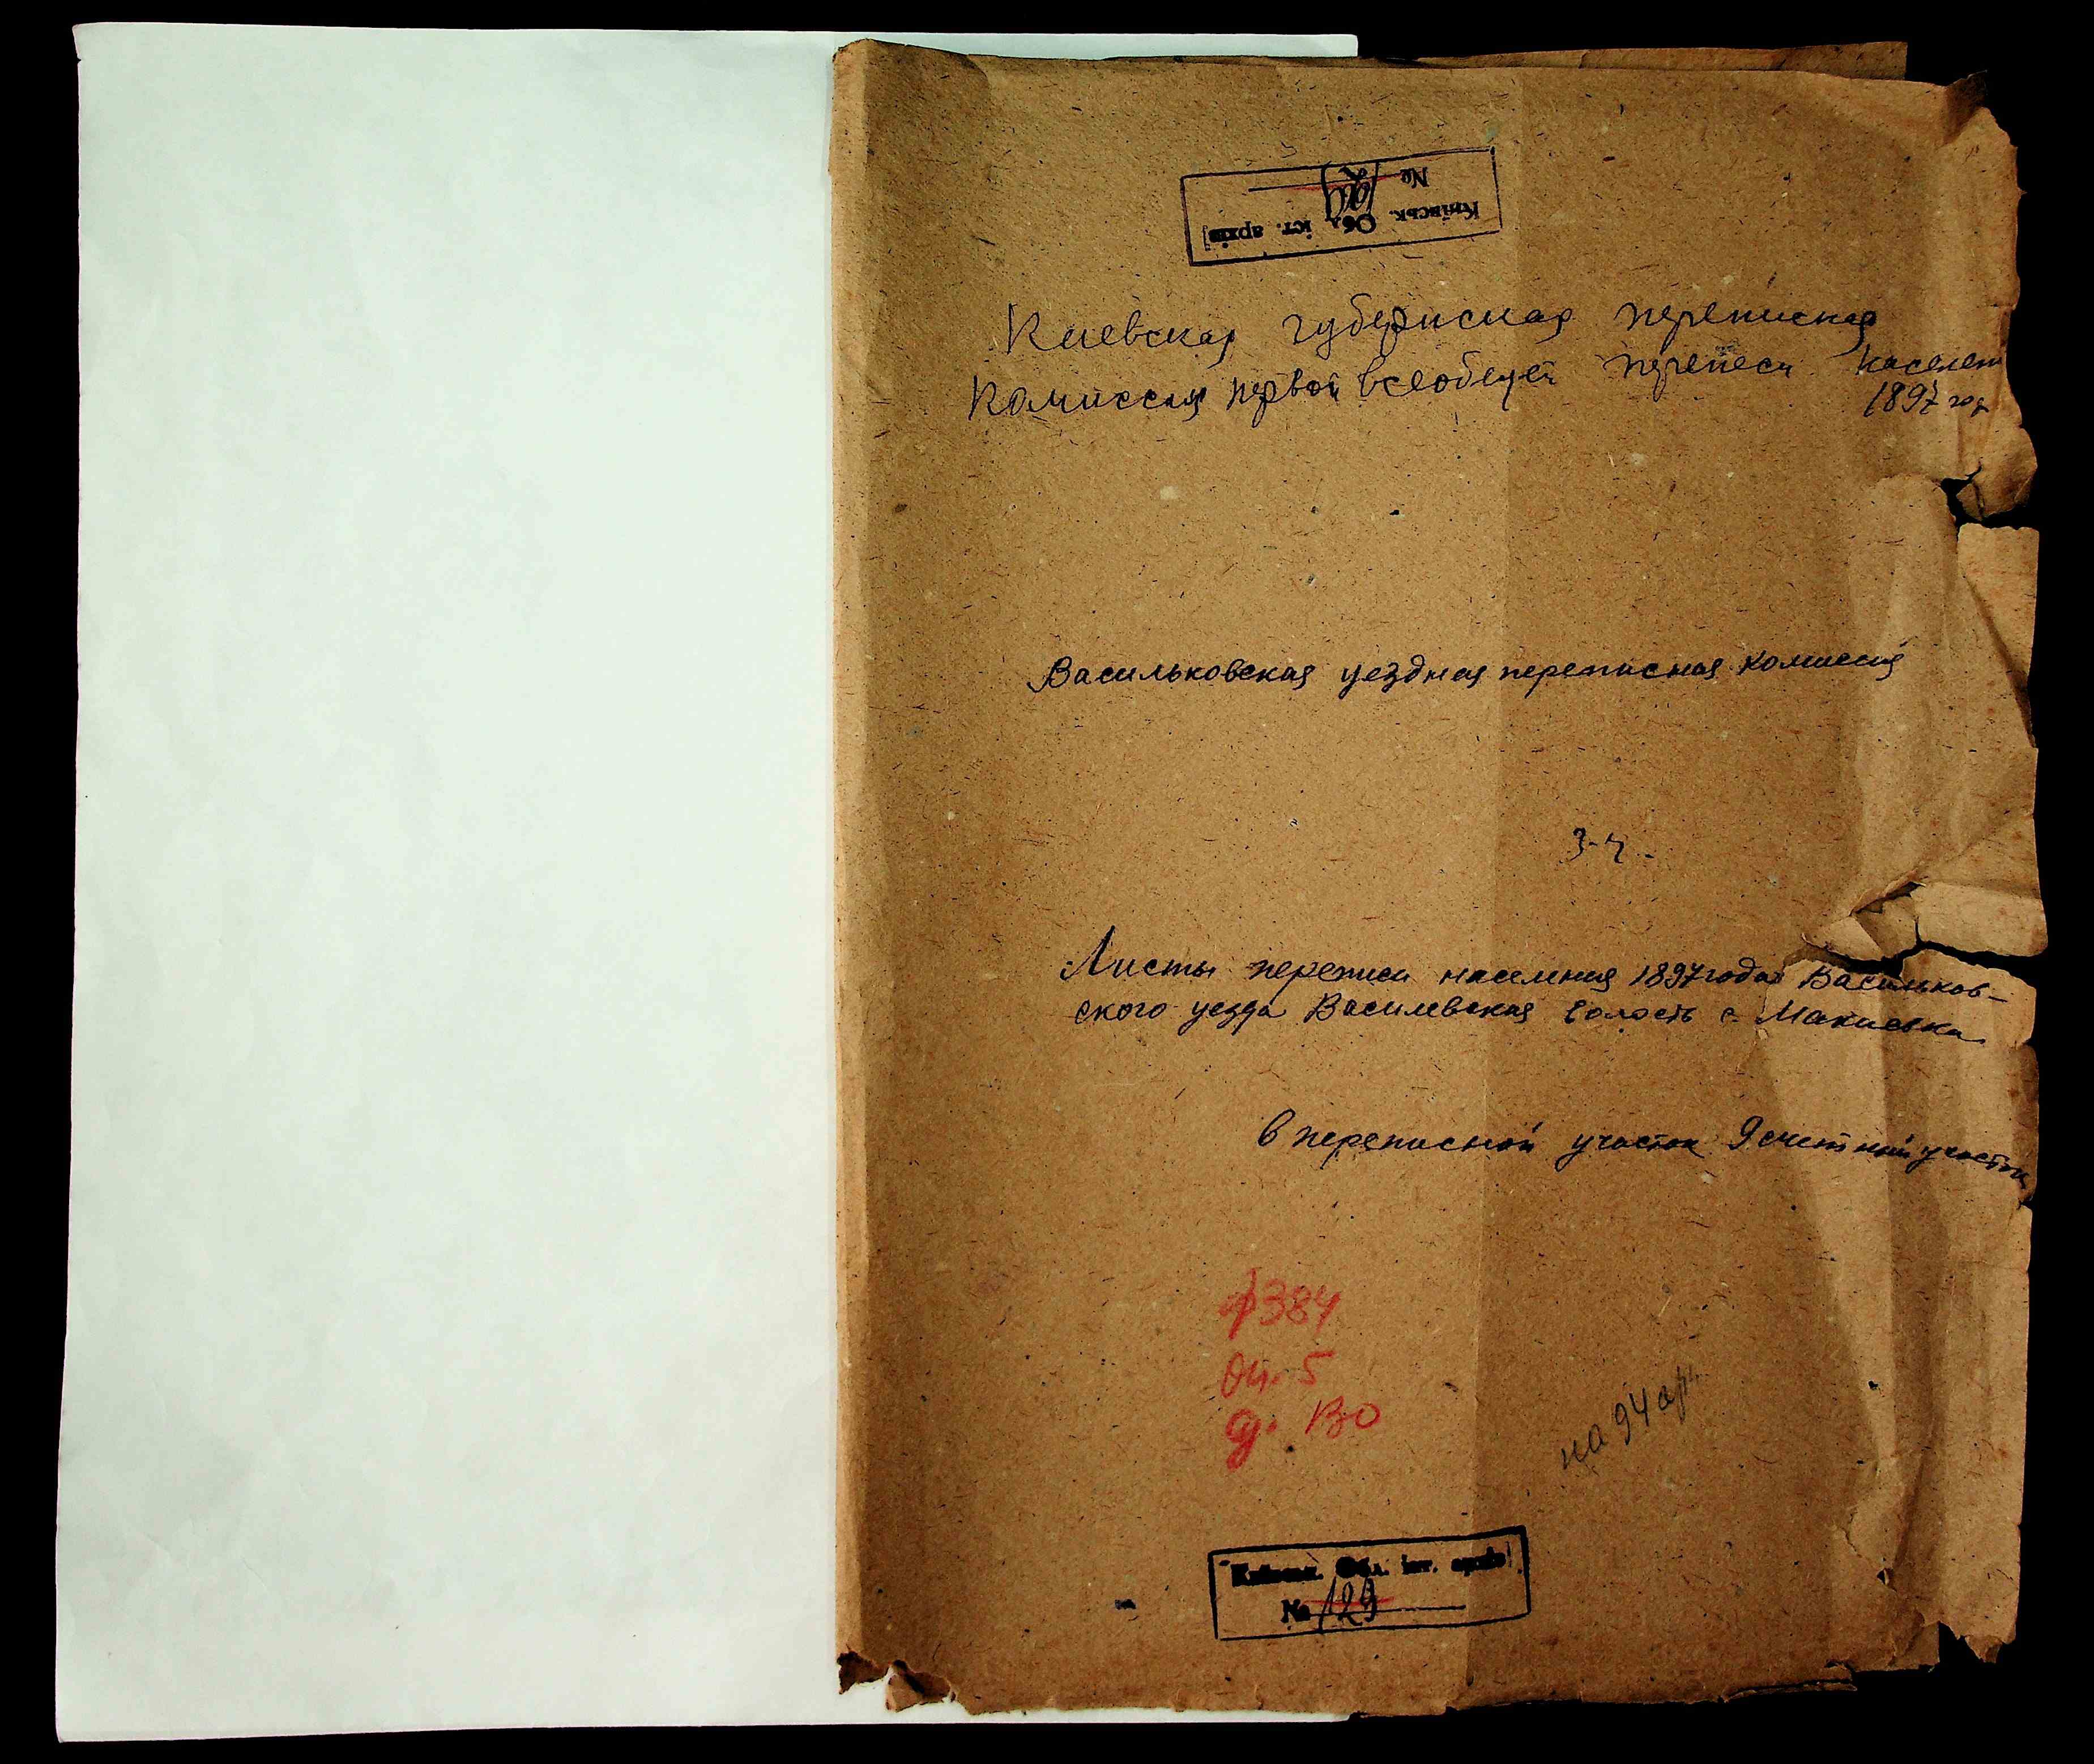 Київськ. Обл. іст. архів
№ 129
Киевская губернская переписная
Комиссия первой всеобщей переписи населен
1897 год
Васильковская уездная переписная комиссия
3-4
Листы переписи населения 1897 года Васильков-
ского уезда Василевская волость с. Макиевка
в переписной участок 9 счетный участок
ф 384
оп. 5
д. 130
на 94 арк
Київськ. Обл. іст. архів
№ 129